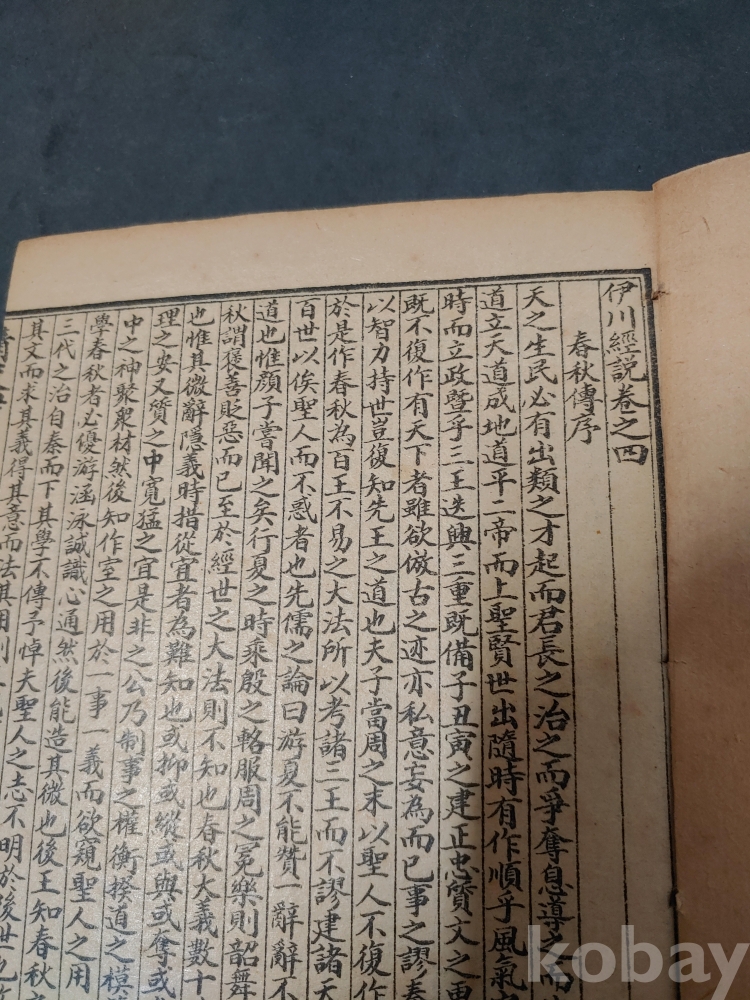 伊川經説卷之四
春秋傳序
天之生民必有出類之才起而君長之治之而爭奪息導之而
道立天道成地道平二帝而上聖賢世出隨時有作順乎風氣
時而立政暨乎三王迭興三重既備子丑寅之建正忠質文之更
既不復作有天下者雖欲倣古之迹亦私意妄為而已事之謬
以智力持世豈復知先王之道也夫子當周之末以聖人不復作
於是作春秋為百王不易之大法所以考諸三王而不謬建諸天
百世以俟聖人而不惑者也先儒之論曰游夏不能贊一辭辭不
道也惟顔子嘗聞之矣行夏之時乘殷之輅服周之冕樂則韶舞
秋謂褒善貶惡而已至於經世之大法則不知也春秋大義數十
也惟其微辭隱義時措從宜者為難知也或抑或縱或與或奪或
理之安又質之中寬猛之宜是非之公乃制事之權衡揆道之模
中之神聚衆材然後知作室之用於一事一義而欲窺聖人之用
學春秋者必優游涵泳誠識心通然後能造其微也後王知春秋
三代之治自秦而下其學不傳予悼夫聖人之志不明於後世也
其文而求其義得其意而法其用則
kobay